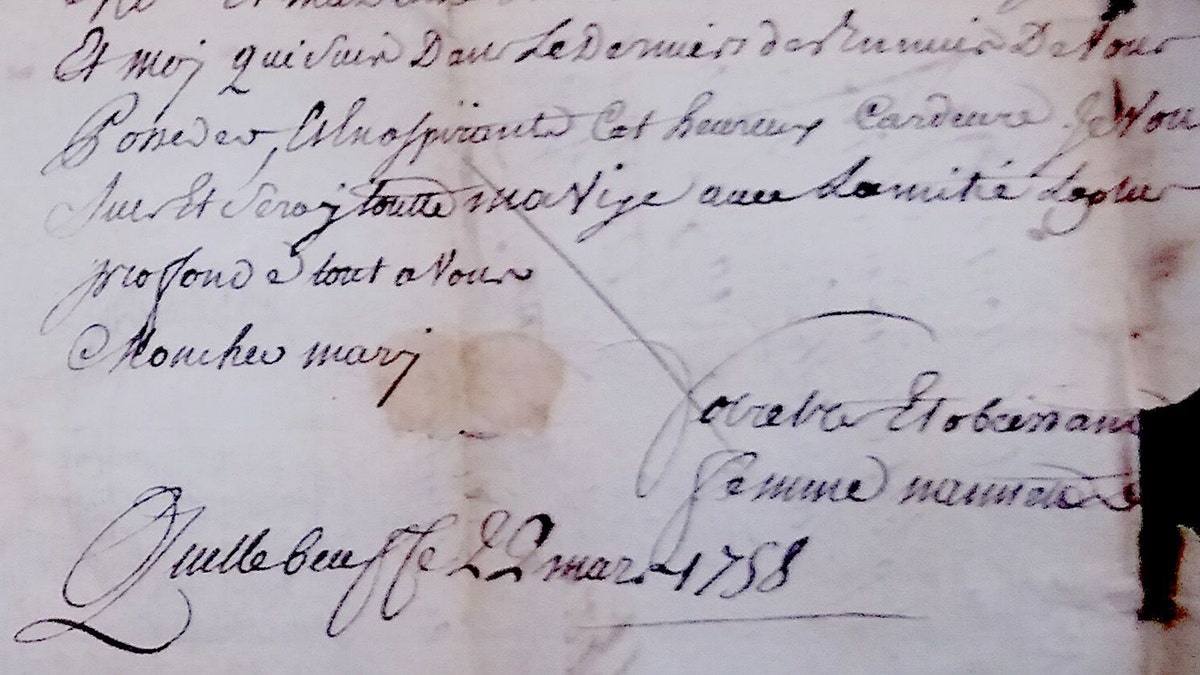 Et moy qui Suis Dans Le Dernier des Ennuis De Vous
Posseder, Et En aspirants Cet heureux Cardeure Je Vous
Suis Et Seray toutte ma Viye avec Lamitié Leplus
proffond e tout a Vous
Moncher mary
Votre Et obeissante
femme nannette
Quillebeuf Le 22 mars 1758